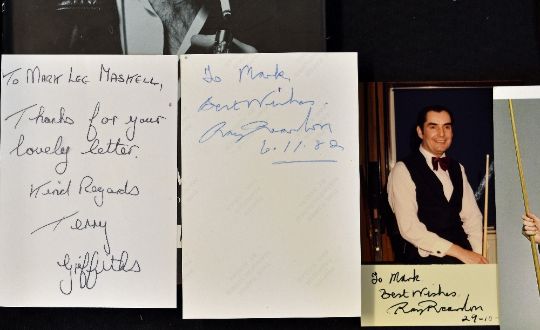 To Mark Lee Maskell,
Thanks for your
lovely letter.
Kind Regards
Terry
Griffiths
To Mark,
Best Wishes.
Ray Reardon
6.11.82
To Mark
Best Wishes.
Ray Reardon
29-10-